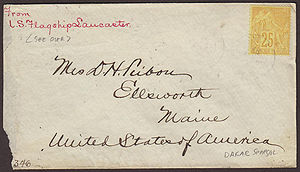 From
U.S. Flagship Lancaster
(SEE OVER)
25
Mrs D. H.
Ellsworth
Maine
United States of America
DAKAR
346